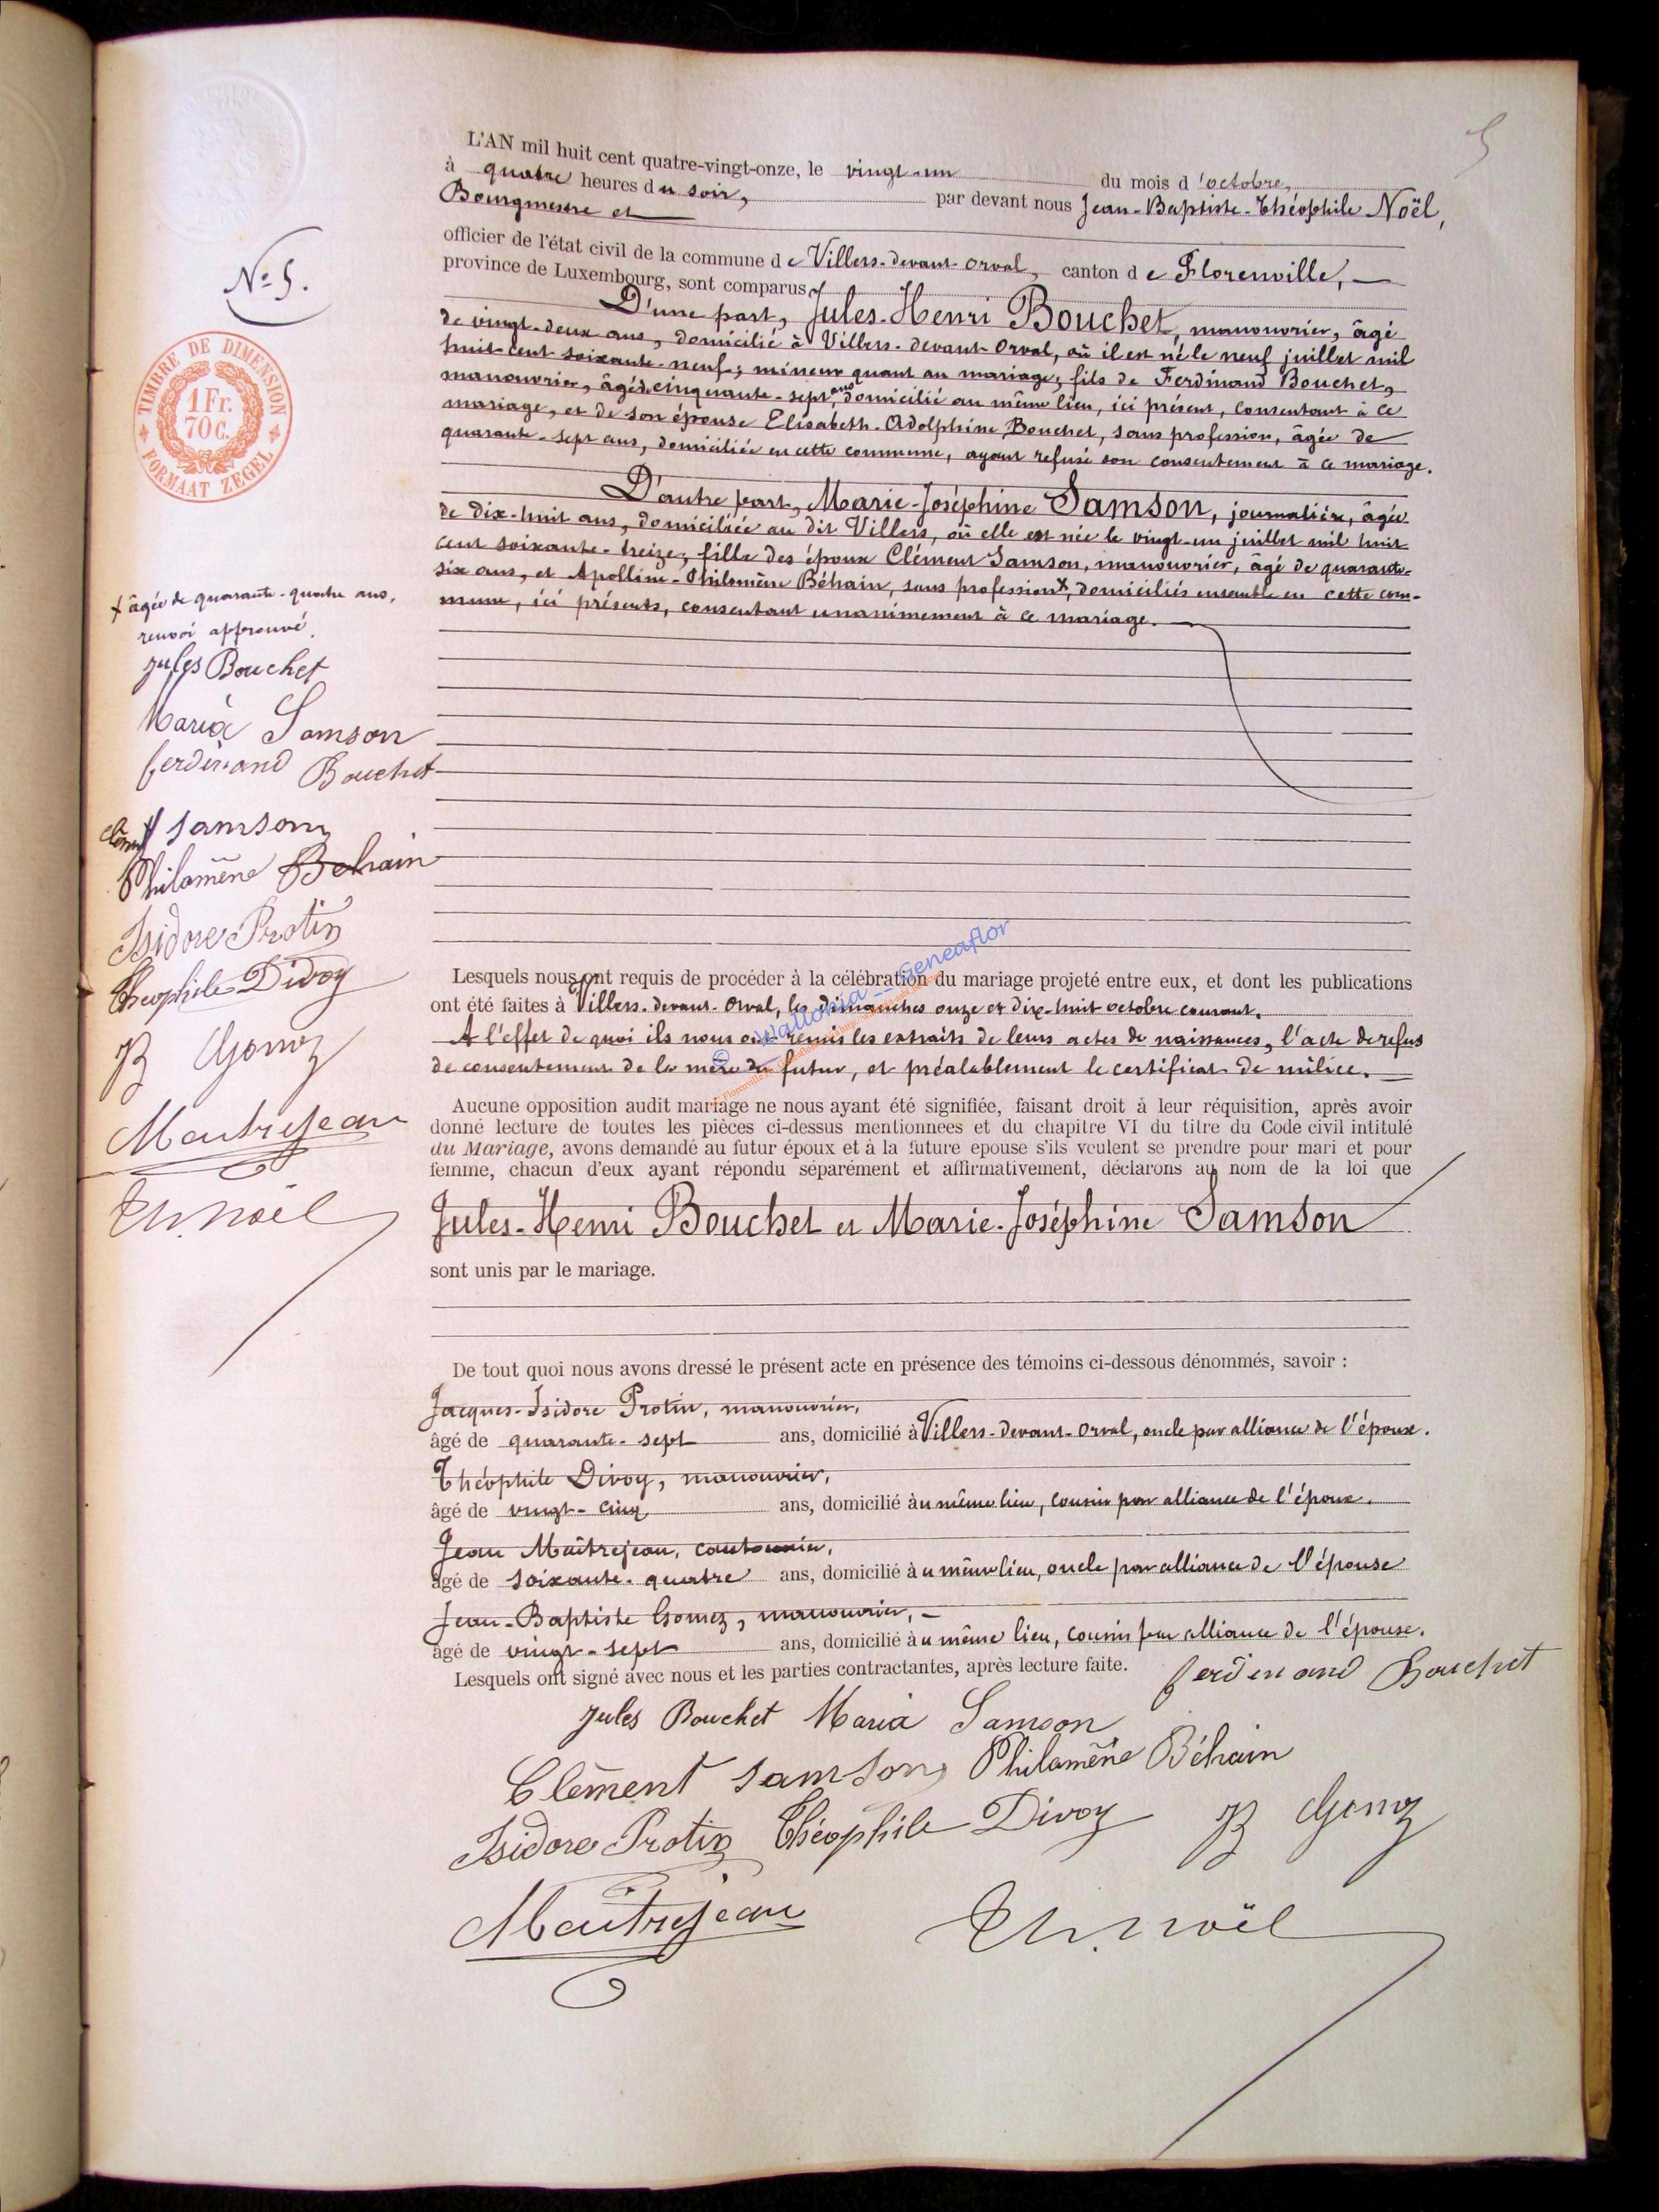 5
L'AN mil huit cent quatre-vingt-onze, le vingt-un du mois d'octobre,
à quatre heures du soir, par devant nous Jean-Baptiste-Théophile Noël,
Bourgmestre et
officier de l'état civil de la commune de Villers-devant-Orval, canton de Florenville,
province de Luxembourg, sont comparus
D'une part, Jules-Henri Bouchet, manouvrier, âgé
de vingt-deux ans, domicilié à Villers-devant-Orval, où il est né le neuf juillet mil
huit-cent soixante-neuf; mineur quant au mariage; fils de Ferdinand Bouchet,
manouvrier, âgé de cinquante-sept ans, domicilié au même lieu, ici présent, consentant à ce
mariage, et de son épouse Elisabeth-Adolphine Bouchet, sans profession, âgée de
quarante-sept ans, domiciliée en cette commune, ayant refusé son consentement à ce mariage.
D'autre part, Marie-Joséphine Samson, journalière, âgée
de dix-huit ans, domiciliée au dit Villers, où elle est née le vingt-un juillet mil huit
cent soixante-treize, fille des époux Clément Samson, manouvrier, âgé de quarante-
six ans, et Apolline-Philomène Béhain, sans profession +, domiciliés ensemble en cette com-
mune, ici présents, consentant unanimement à ce mariage.
Lesquels nous ont requis de procéder à la célébration du mariage projeté entre eux, et dont les publications
ont été faites à Villers-devant-Orval, les dimanches onze et dix-huit octobre courant.
A l'effet de quoi ils nous ont remis les extraits de leurs actes de naissances, l'acte de refus
de consentement de la mère du futur, et préalablement le certificat de milice.
Aucune opposition audit mariage ne nous ayant été signifiée, faisant droit à leur réquisition, après avoir
donné lecture de toutes les pièces ci-dessus mentionnees et du chapitre VI du titre du Code civil intitulé
du Mariage, avons demandé au futur époux et à la future epouse s'ils veulent se prendre pour mari et pour
femme, chacun d'eux ayant répondu séparément et affirmativement, déclarons au nom de la loi que
Jules-Henri Bouchet et Marie-Joséphine Samson
sont unis par le mariage.
De tout quoi nous avons dressé le présent acte en présence des témoins ci-dessous dénommés, savoir :
Jacques-Isidore Protin, manouvrier,
âgé de quarante-sept ans, domicilié à Villers-devant-Orval, oncle par alliance de l'époux.
Théophile Divoy, manouvrier,
âgé de vingt-cinq ans, domicilié au même lieu, cousin par alliance de l'époux.
Jean Maîtrejean, cantonnier,
âgé de soixante-quatre ans, domicilié au même lieu, oncle par alliance de l'épouse
Jean-Baptiste Gomez, manouvrier,
âgé de vingt-sept ans, domicilié au même lieu, cousin par alliance de l'épouse.
Lesquels ont signé avec nous et les parties contractantes, après lecture faite.
ferdinand Bouchet
Jules Bouchet Maria Samson
Clément Samson Philomène Béhain
Isidore Protin Théophile Divoy JB Gomez
Maitrejean Th. Noël
N° 5.
TIMBRE DE DIMENSION
1 Fr.
70 C.
FORMAAT ZEGEL
+ âgée de quarante-quatre ans,
renvoi approuvé.
Jules Bouchet
Maria Samson
ferdinand Bouchet
Clément Samson
Philomène Behain
Isidore Protin
Théophile Divoy
JB Gomez
Maitrejean
Th. Noël
© Wallonia - Geneaflor